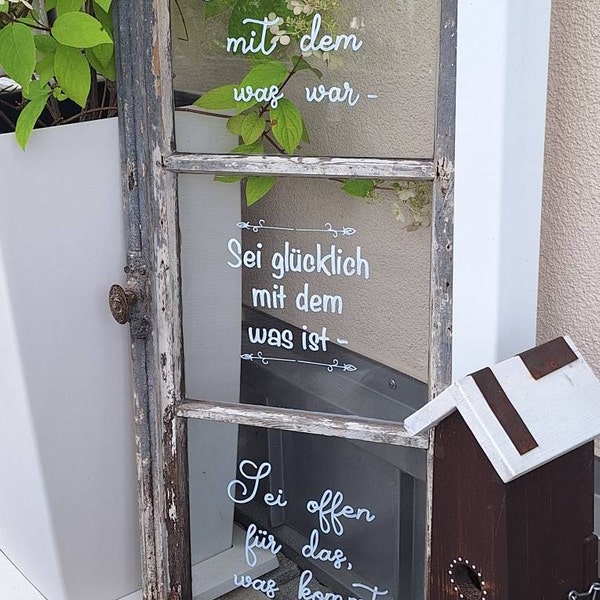 mit dem
was war -
Sei glücklich
mit dem
was ist -
Sei offen
für das,
was kommt